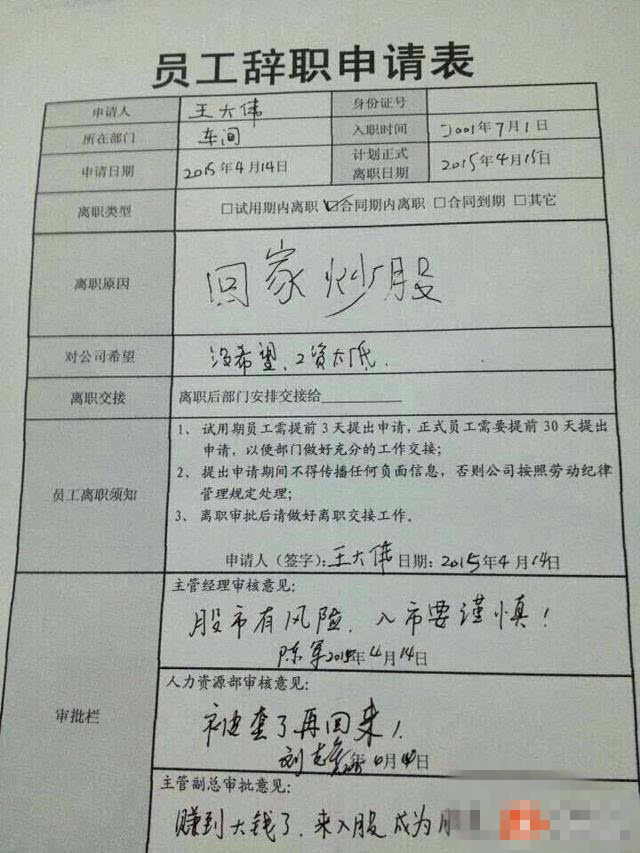 员工辞职申请表
申请人 王大伟 身份证号
所在部门 车间 入职时间 2001年7月1日
申请日期 2015年4月14日 计划正式离职日期 2015年4月15日
离职类型 □试用期内离职 ☑合同期内离职 □合同到期 □其它
离职原因 回家炒股
对公司希望 没希望,工资太低.
离职交接 离职后部门安排交接给
员工离职须知
1、试用期员工需提前3天提出申请,正式员工需要提前30天提出
申请,以便部门做好充分的工作交接;
2、提出申请期间不得传播任何负面信息,否则公司按照劳动纪律
管理规定处理;
3、离职审批后请做好离职交接工作。
申请人(签字):王大伟 日期:2015年4月14日
审批栏
主管经理审核意见:
股市有风险,入市要谨慎!
陈军 2015年4月14日
人力资源部审核意见:
被套了再回来!
刘 年 月 日
主管副总审批意见:
赚到大钱了,来入股成为